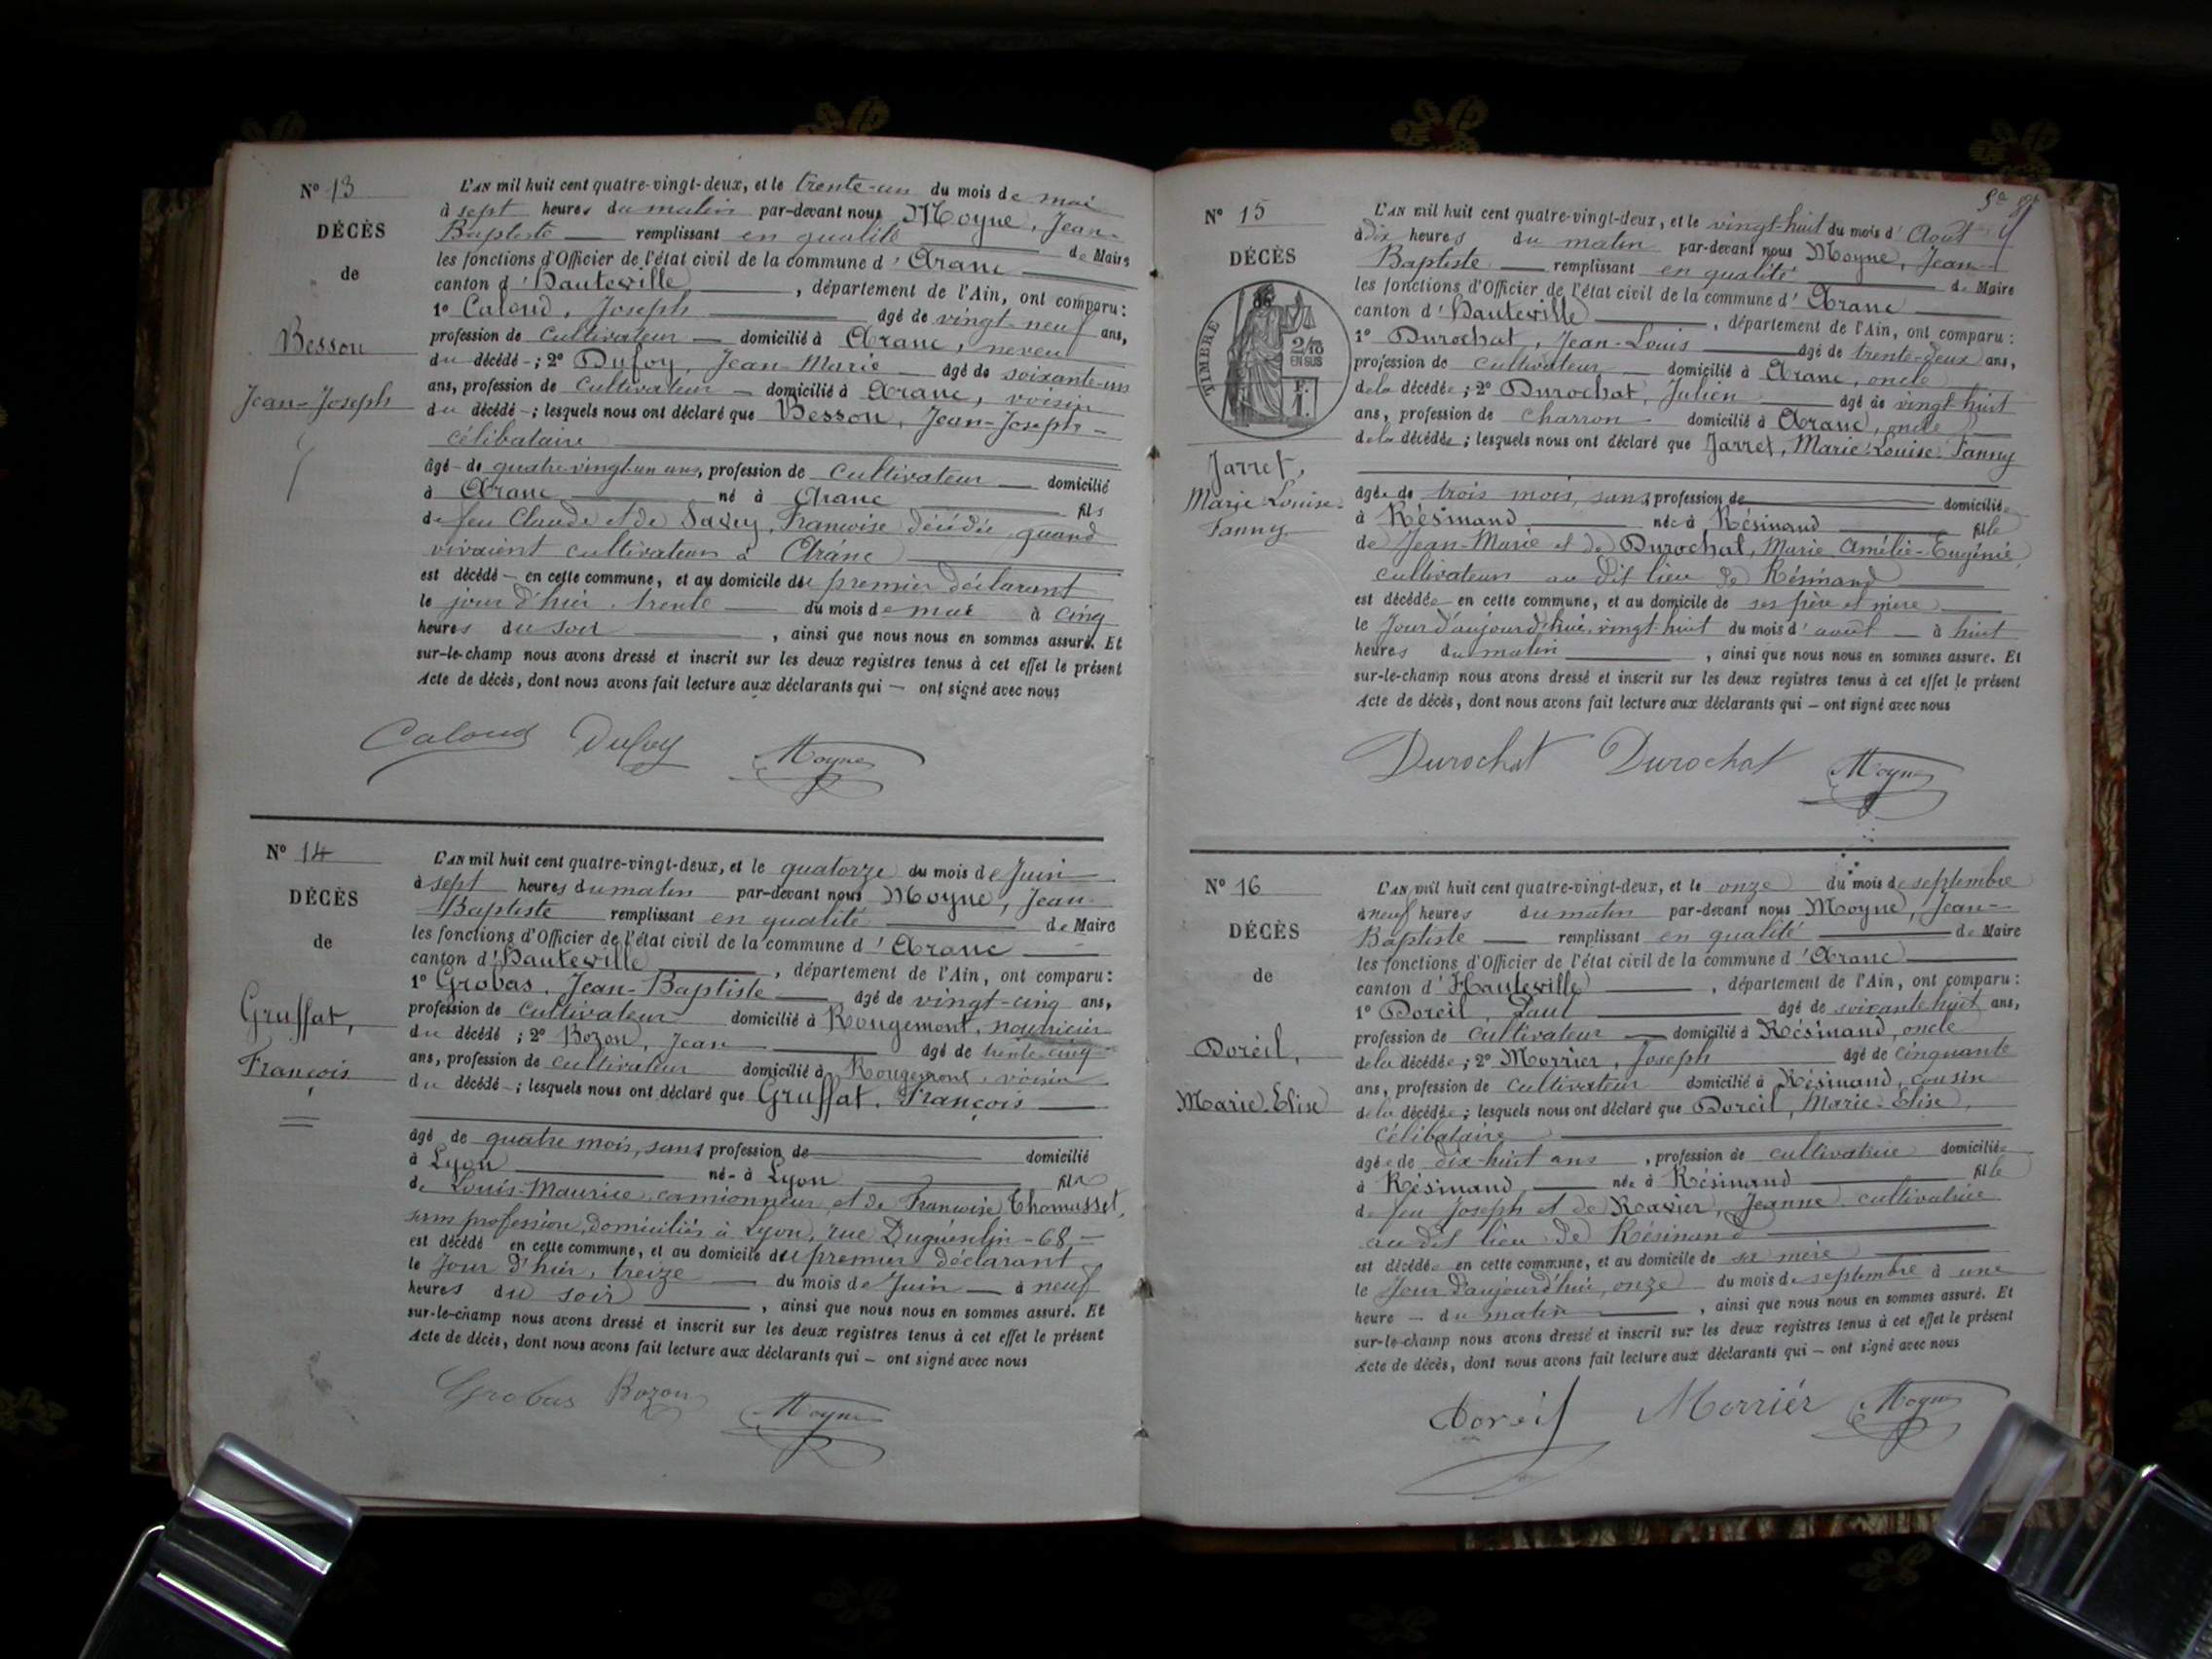 N° 13
DÉCÈS
de
Besson
Jean-Joseph
L'AN mil huit cent quatre-vingt-deux, et le trente-un du mois de mai
à sept heures du matin par-devant nous Moyne, Jean-
Baptiste remplissant en qualité de Maire
les fonctions d'Officier de l'état civil de la commune d'Aranc
canton d'Hauteville, département de l'Ain, ont comparu :
1° Caloud, Joseph âgé de vingt-neuf ans,
profession de cultivateur domicilié à Aranc, neveu
du décédé ; 2° Dufoy, Jean-Marie âgé de soixante-un
ans, profession de cultivateur domicilié à Aranc, voisin
du décédé ; lesquels nous ont déclaré que Besson, Jean-Joseph
célibataire
âgé de quatre-vingt-un ans, profession de cultivateur domicilié
à Aranc né à Aranc fils
de feu Claude et de Savey, Françoise décédée, quand
vivaient cultivateurs à Aranc
est décédé en cette commune, et au domicile du premier déclarant
le jour d'hier, trente du mois de mai à cinq
heures du soir, ainsi que nous nous en sommes assuré. Et
sur-le-champ nous avons dressé et inscrit sur les deux registres tenus à cet effet le présent
Acte de décès, dont nous avons fait lecture aux déclarants qui — ont signé avec nous
Caloud Dufoy Moyne
N° 14
DÉCÈS
de
Gruffat,
François
L'AN mil huit cent quatre-vingt-deux, et le quatorze du mois de Juin
à sept heures du matin par-devant nous Moyne, Jean-
Baptiste remplissant en qualité de Maire
les fonctions d'Officier de l'état civil de la commune d'Aranc
canton d'Hauteville, département de l'Ain, ont comparu :
1° Grobas, Jean-Baptiste âgé de vingt-cinq ans,
profession de cultivateur domicilié à Rougemont, nourricier
du décédé ; 2° Bozon, Jean âgé de trente-cinq
ans, profession de cultivateur domicilié à Rougemont, voisin
du décédé ; lesquels nous ont déclaré que Gruffat, François
âgé de quatre mois, sans profession de domicilié
à Lyon né à Lyon fils
de Louis-Maurice, camionneur et de Françoise Thomasset,
sans profession, domiciliés à Lyon, rue Duguesclin - 68 -
est décédé en cette commune, et au domicile du premier déclarant
le jour d'hier, treize du mois de Juin à neuf
heures du soir, ainsi que nous nous en sommes assuré. Et
sur-le-champ nous avons dressé et inscrit sur les deux registres tenus à cet effet le présent
Acte de décès, dont nous avons fait lecture aux déclarants qui — ont signé avec nous
Grobas Bozon Moyne
N° 15
DÉCÈS
de
TIMBRE
2/10
EN SUS
Jarret,
Marie-Louise-
Fanny
L'AN mil huit cent quatre-vingt-deux, et le vingt-huit du mois d'Août
à dix heures du matin par-devant nous Moyne, Jean-
Baptiste remplissant en qualité de Maire
les fonctions d'Officier de l'état civil de la commune d'Aranc
canton d'Hauteville, département de l'Ain, ont comparu :
1° Durochat, Jean-Louis âgé de trente-deux ans,
profession de cultivateur domicilié à Aranc, oncle
de la décédée ; 2° Durochat, Julien âgé de vingt-huit
ans, profession de charron domicilié à Aranc, oncle
de la décédée ; lesquels nous ont déclaré que Jarret, Marie-Louise-Fanny
âgée de trois mois, sans profession de domiciliée
à Résinand née à Résinand fille
de Jean-Marie et de Durochat, Marie-Amélie-Eugénie,
cultivateurs au dit lieu de Résinand
est décédée en cette commune, et au domicile de ses père et mère
le Jour d'aujourd'hui, vingt-huit du mois d'août à huit
heures du matin, ainsi que nous nous en sommes assuré. Et
sur-le-champ nous avons dressé et inscrit sur les deux registres tenus à cet effet le présent
Acte de décès, dont nous avons fait lecture aux déclarants qui — ont signé avec nous
Durochat Durochat Moyne
N° 16
DÉCÈS
de
Doreil,
Marie-Elise
L'AN mil huit cent quatre-vingt-deux, et le onze du mois de septembre
à neuf heures du matin par-devant nous Moyne, Jean-
Baptiste remplissant en qualité de Maire
les fonctions d'Officier de l'état civil de la commune d'Aranc
canton d'Hauteville, département de l'Ain, ont comparu :
1° Doreil, Paul âgé de soixante-huit ans,
profession de cultivateur domicilié à Résinand, oncle
de la décédée ; 2° Morrier, Joseph âgé de cinquante
ans, profession de cultivateur domicilié à Résinand, cousin
de la décédée ; lesquels nous ont déclaré que Doreil, Marie-Elise,
célibataire
âgée de dix-huit ans, profession de cultivatrice domiciliée
à Résinand, née à Résinand fille
de feu Joseph et de Ravier, Jeanne cultivatrice
au dit lieu de Résinand
est décédée en cette commune, et au domicile de sa mère
le Jour d'aujourd'hui, onze du mois de septembre à une
heure du matin, ainsi que nous nous en sommes assuré. Et
sur-le-champ nous avons dressé et inscrit sur les deux registres tenus à cet effet le présent
Acte de décès, dont nous avons fait lecture aux déclarants qui — ont signé avec nous
Doreil Morriér Moyne